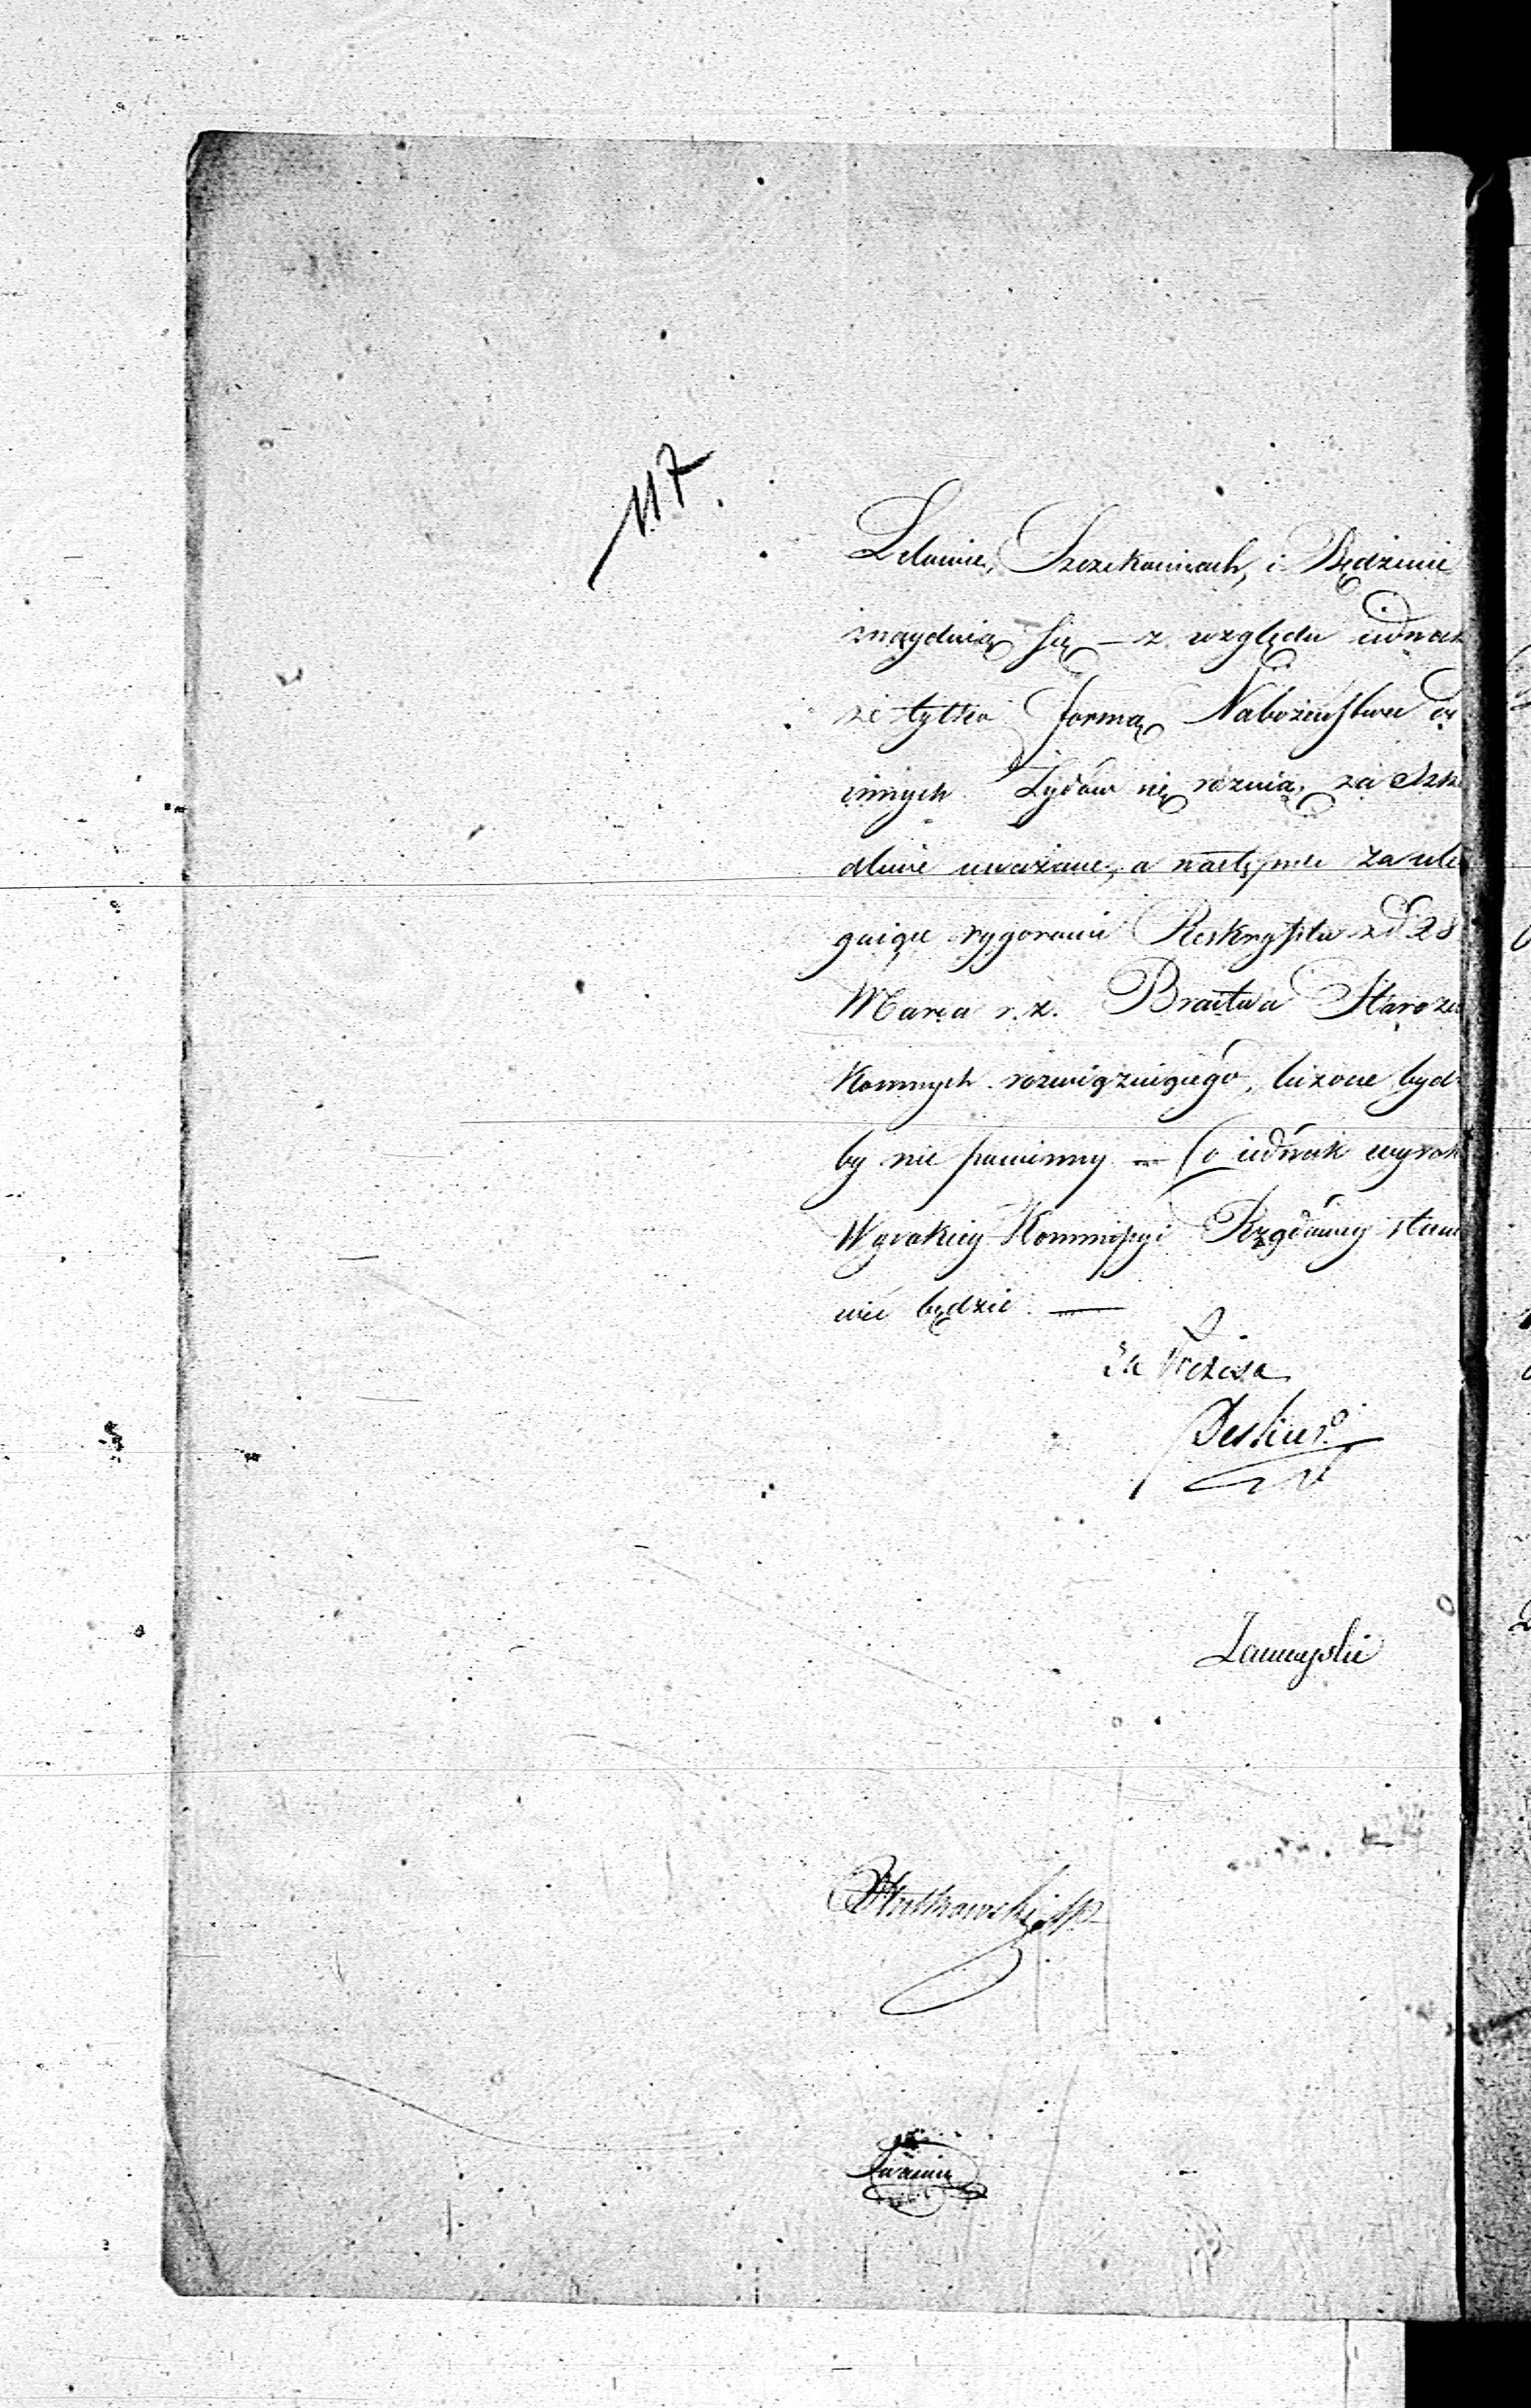 117.
Lelowie, Szczekocinach, i Będzinie
znayduią się — z względu iednak
że tylko formą Nabożeństwa od
innych Żydów się roznią, za szko
dliwe uważane, a następnie za ule
gaiące rygorowi Reskryptu z d. 28
Marca r. z. Bractwa Staroza
konnych rozwięzuiącego, liczone bydź
by nie powinny — Co iednak wyrok
Wysokiey Kommissyi Rządowey stano
wić będzie —
Za Prezesa
Zamoyski